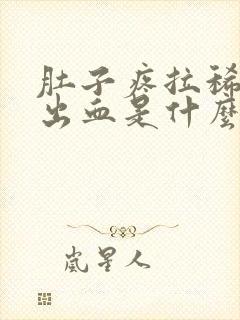 肚子疼拉稀
出血是什麼
嵐星人